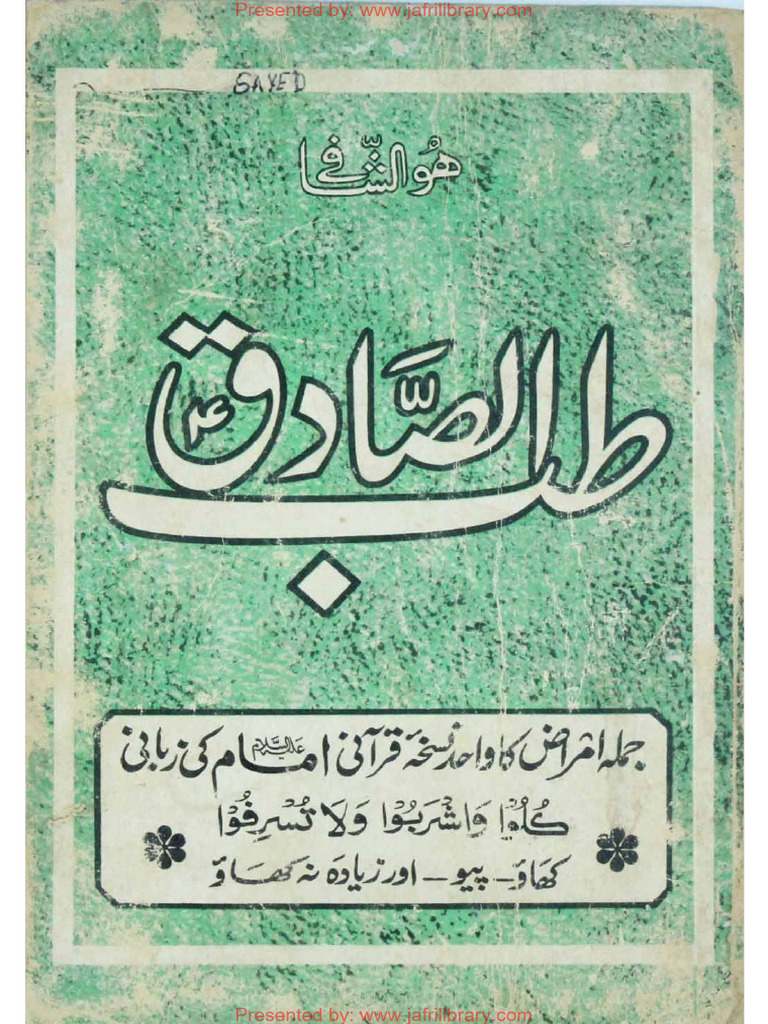 Presented by: www.jafrilibrary.com
SAYED
هُوَ الشَّافِی
طب الصَّادق ؑ
جملہ امراض کا واحد نسخۂ قرآنی امام علیہ السلام کی زبانی
کُلُوْا وَاشْرَبُوْا وَلَا تُسْرِفُوْا
کھاؤ۔ پیو۔ اور زیادہ نہ کھاؤ
Presented by: www.jafrilibrary.com